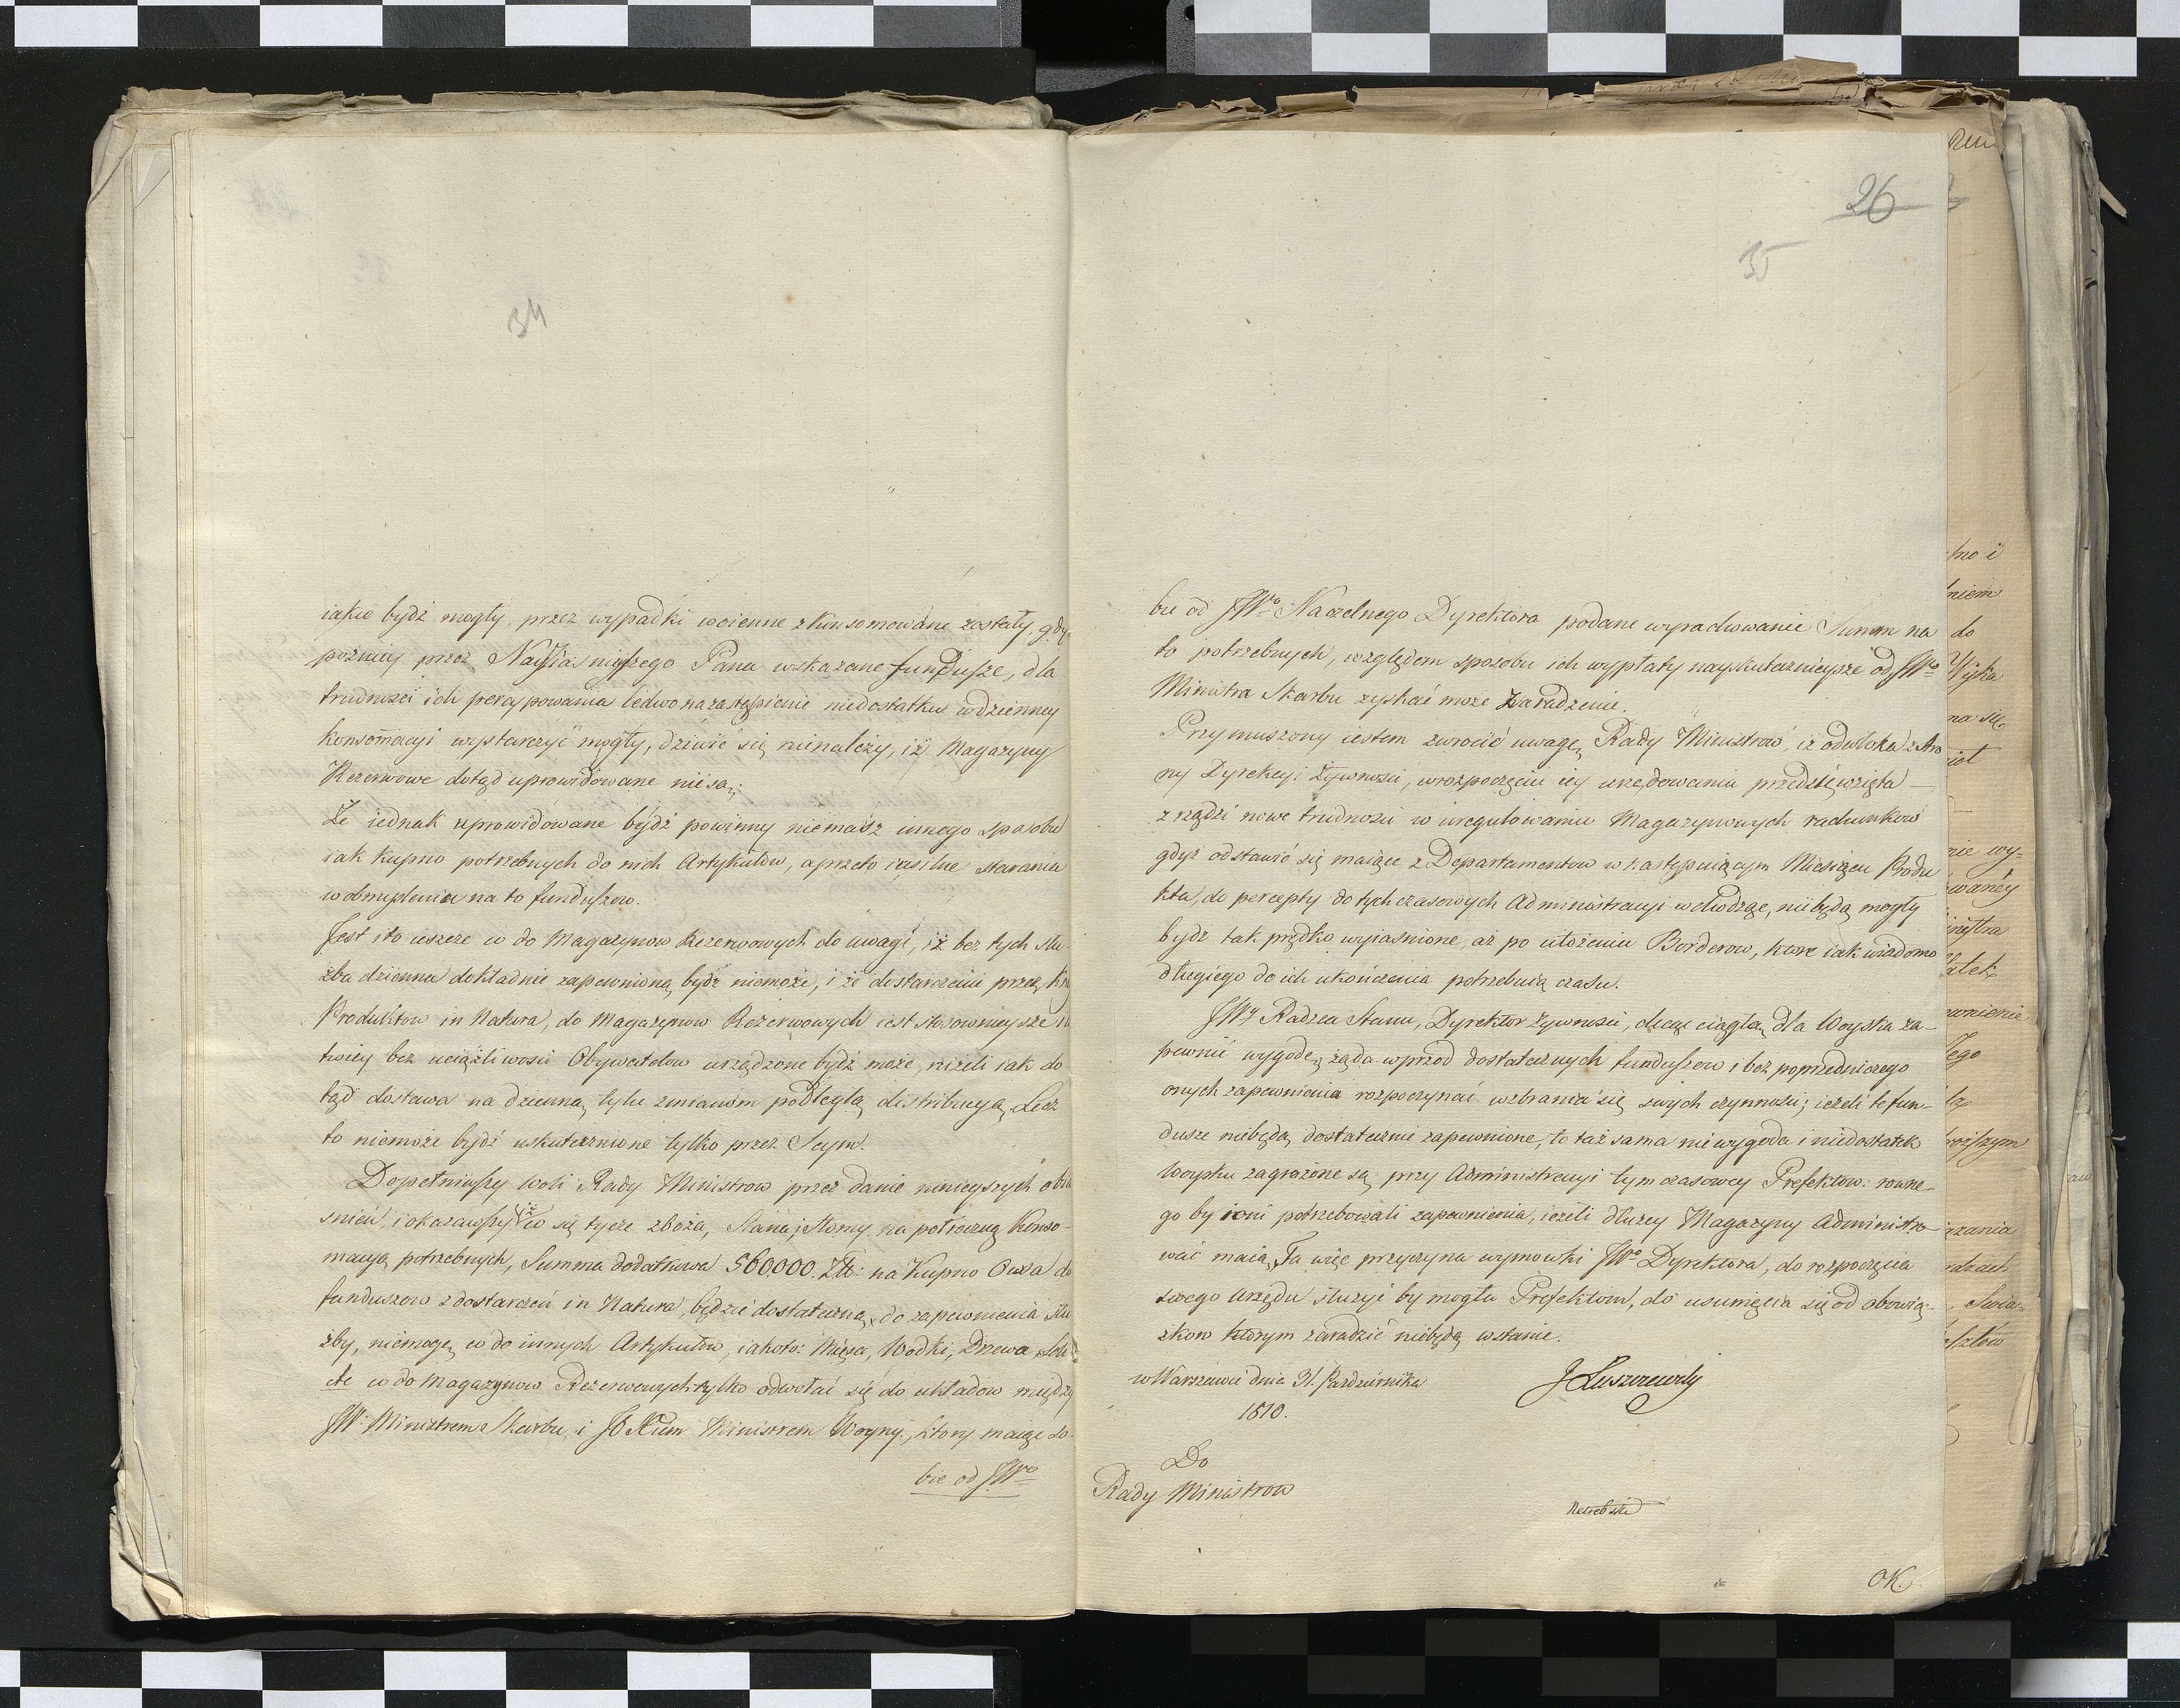 34
iakie bydź mogły, przez wypadki woienne skonsomowane zostały, gdy
pozniey przez Nayiasnieyszego Pana wskazane fundusze, dla
trudności ich percypowania ledwo na zastąpienie niedostatku w dzienney
konsomacyi wystarczyć mogły, dziwić się nienależy, iż Magazyny
Rezerwowe dotąd uprowidowane nie są;
Że iednak uprowidowane bydź powinny niemasz innego sposobu
iak kupno potrzebnych do nich Artykułow, a przeto i usilne starania
w obmyslenia na to funduszow.
Jest ito ieszcze co do Magazynow Rezerwowych do uwagi, iż bez tych słu-
żba dzienna dokładnie zapewnioną bydź niemoże, i że dostarczenie przez Kray
Produktow in Natura, do Magazynow Rezerwowych iest stosownieysze i ła
twiey bez uciążliwosci Obywatelow urządzone bydź może, niżeli iak do
tąd dostawa na dzienną, tylu zmianom podległą distribucyą. Lecz
to niemoże bydź uskutecznione tylko przez Seym.
Dopełniwszy Woli Rady Ministrow przez danie ninieyszych obia
snień, i okazawszy iż co się tycze zboża, Siana, i Słomy na połroczną Konso-
macyą potrzebnych, Summa dodatkowa 560,000. Złł: na Kupno Owsa do
funduszow z dostarczeń in Natura będzie dostateczną do zapewnienia słu
żby, niemogę co do innych Artykułow, iakoto: Mięsa, Wodki, Drzewa, Soli
etc co do Magazynow Rezerwowych tylko odwołać się do układow między
JW: Ministrem Skarbu, i JO Xciem Ministrem Woyny, ktory maiąc so
bie od JWo
26
35
bie od JWgo Naczelnego Dyrektora podane wyrachowanie Summ na
to potrzebnych, względem sposobu ich wypłaty nayskutecznieysze od JWo
Ministra Skarbu zyskać może zaradzenie.
Przymuszony iestem zwrocić uwagę Rady Ministrow, iż odwłoka z stro
ny Dyrekcyi Żywnosci, w rozpoczęciu iey urzędowania przedsięwzięta —
zrządzi nowe trudnosci w uregulowaniu Magazynowych rachunkow
gdyż odstawić się maiące z Departamentow w następuiącym Miesiącu Produ
kta, do percepty dotychczasowych Administracyi wchodząc, niebędą mogły
bydz tak prędko wyiasnione, aż po ułożeniu Borderow, ktore iak wiadomo
długiego do ich ukończenia potrzebuią czasu.
JWy Radzca Stanu, Dyrektor żywnosci, chcąc ciągłą dla Woyska za-
pewnić wygodę, żąda wprzod dostatecznych funduszow i bez poprzedniczego
onych zapewnienia rozpoczynać wzbrania się swych czynnosci; ieżeli te fun-
dusze niebędą dostatecznie zapewnione, to taż sama niewygoda i niedostatek
Woysku zagrożone są przy Administracyi tymczasowey Prefektow: rowne-
go by i oni potrzebowali zapewnienia, ieżeli dłużey Magazyny Administro-
wać maią. Ta więc przyczyna wymowki JWo Dyrektora, do rozpoczęcia
swego Urzędu służyć by mogła Prefektom, do usunięcia się od obowią-
zkow ktorym zaradzić niebędą w stanie.
w Warszawie dnia 31. Pazdziernika
1810.
J Łuszczewsky
Do
Rady Ministrow
OK.